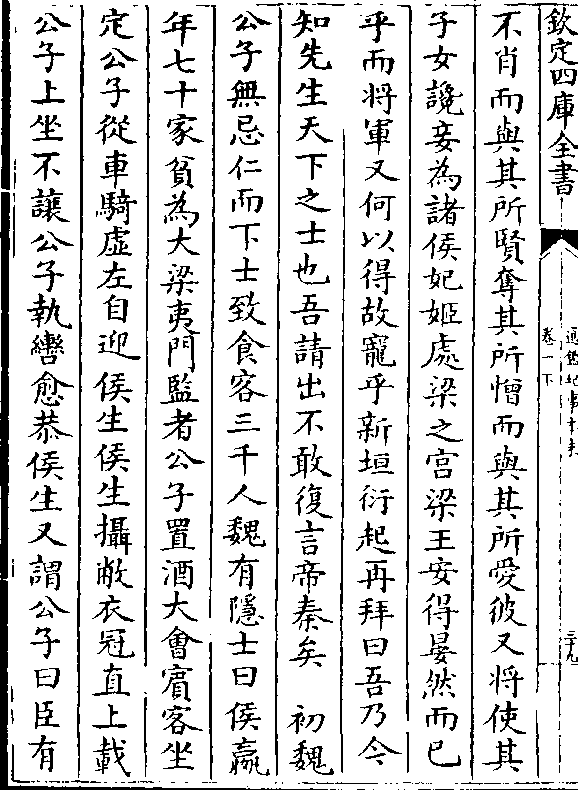 欽定四庫全書
通鑑紀事本末
卷一下
三十九
不肖而與其所賢奪其所憎而與其所愛彼又將使其
子女讒妾為諸侯妃姬處梁之宮梁王安得晏然而已
乎而將軍又何以得故寵乎新垣衍起再拜曰吾乃今
知先生天下之士也吾請出不敢復言帝秦矣 初魏
公子無忌仁而下士致食客三千人魏有隱士曰侯嬴
年七十家貧為大梁夷門監者公子置酒大會賓客坐
定公子從車騎虛左自迎侯生侯生攝敝衣冠直上載
公子上坐不讓公子執轡愈恭侯生又謂公子曰臣有